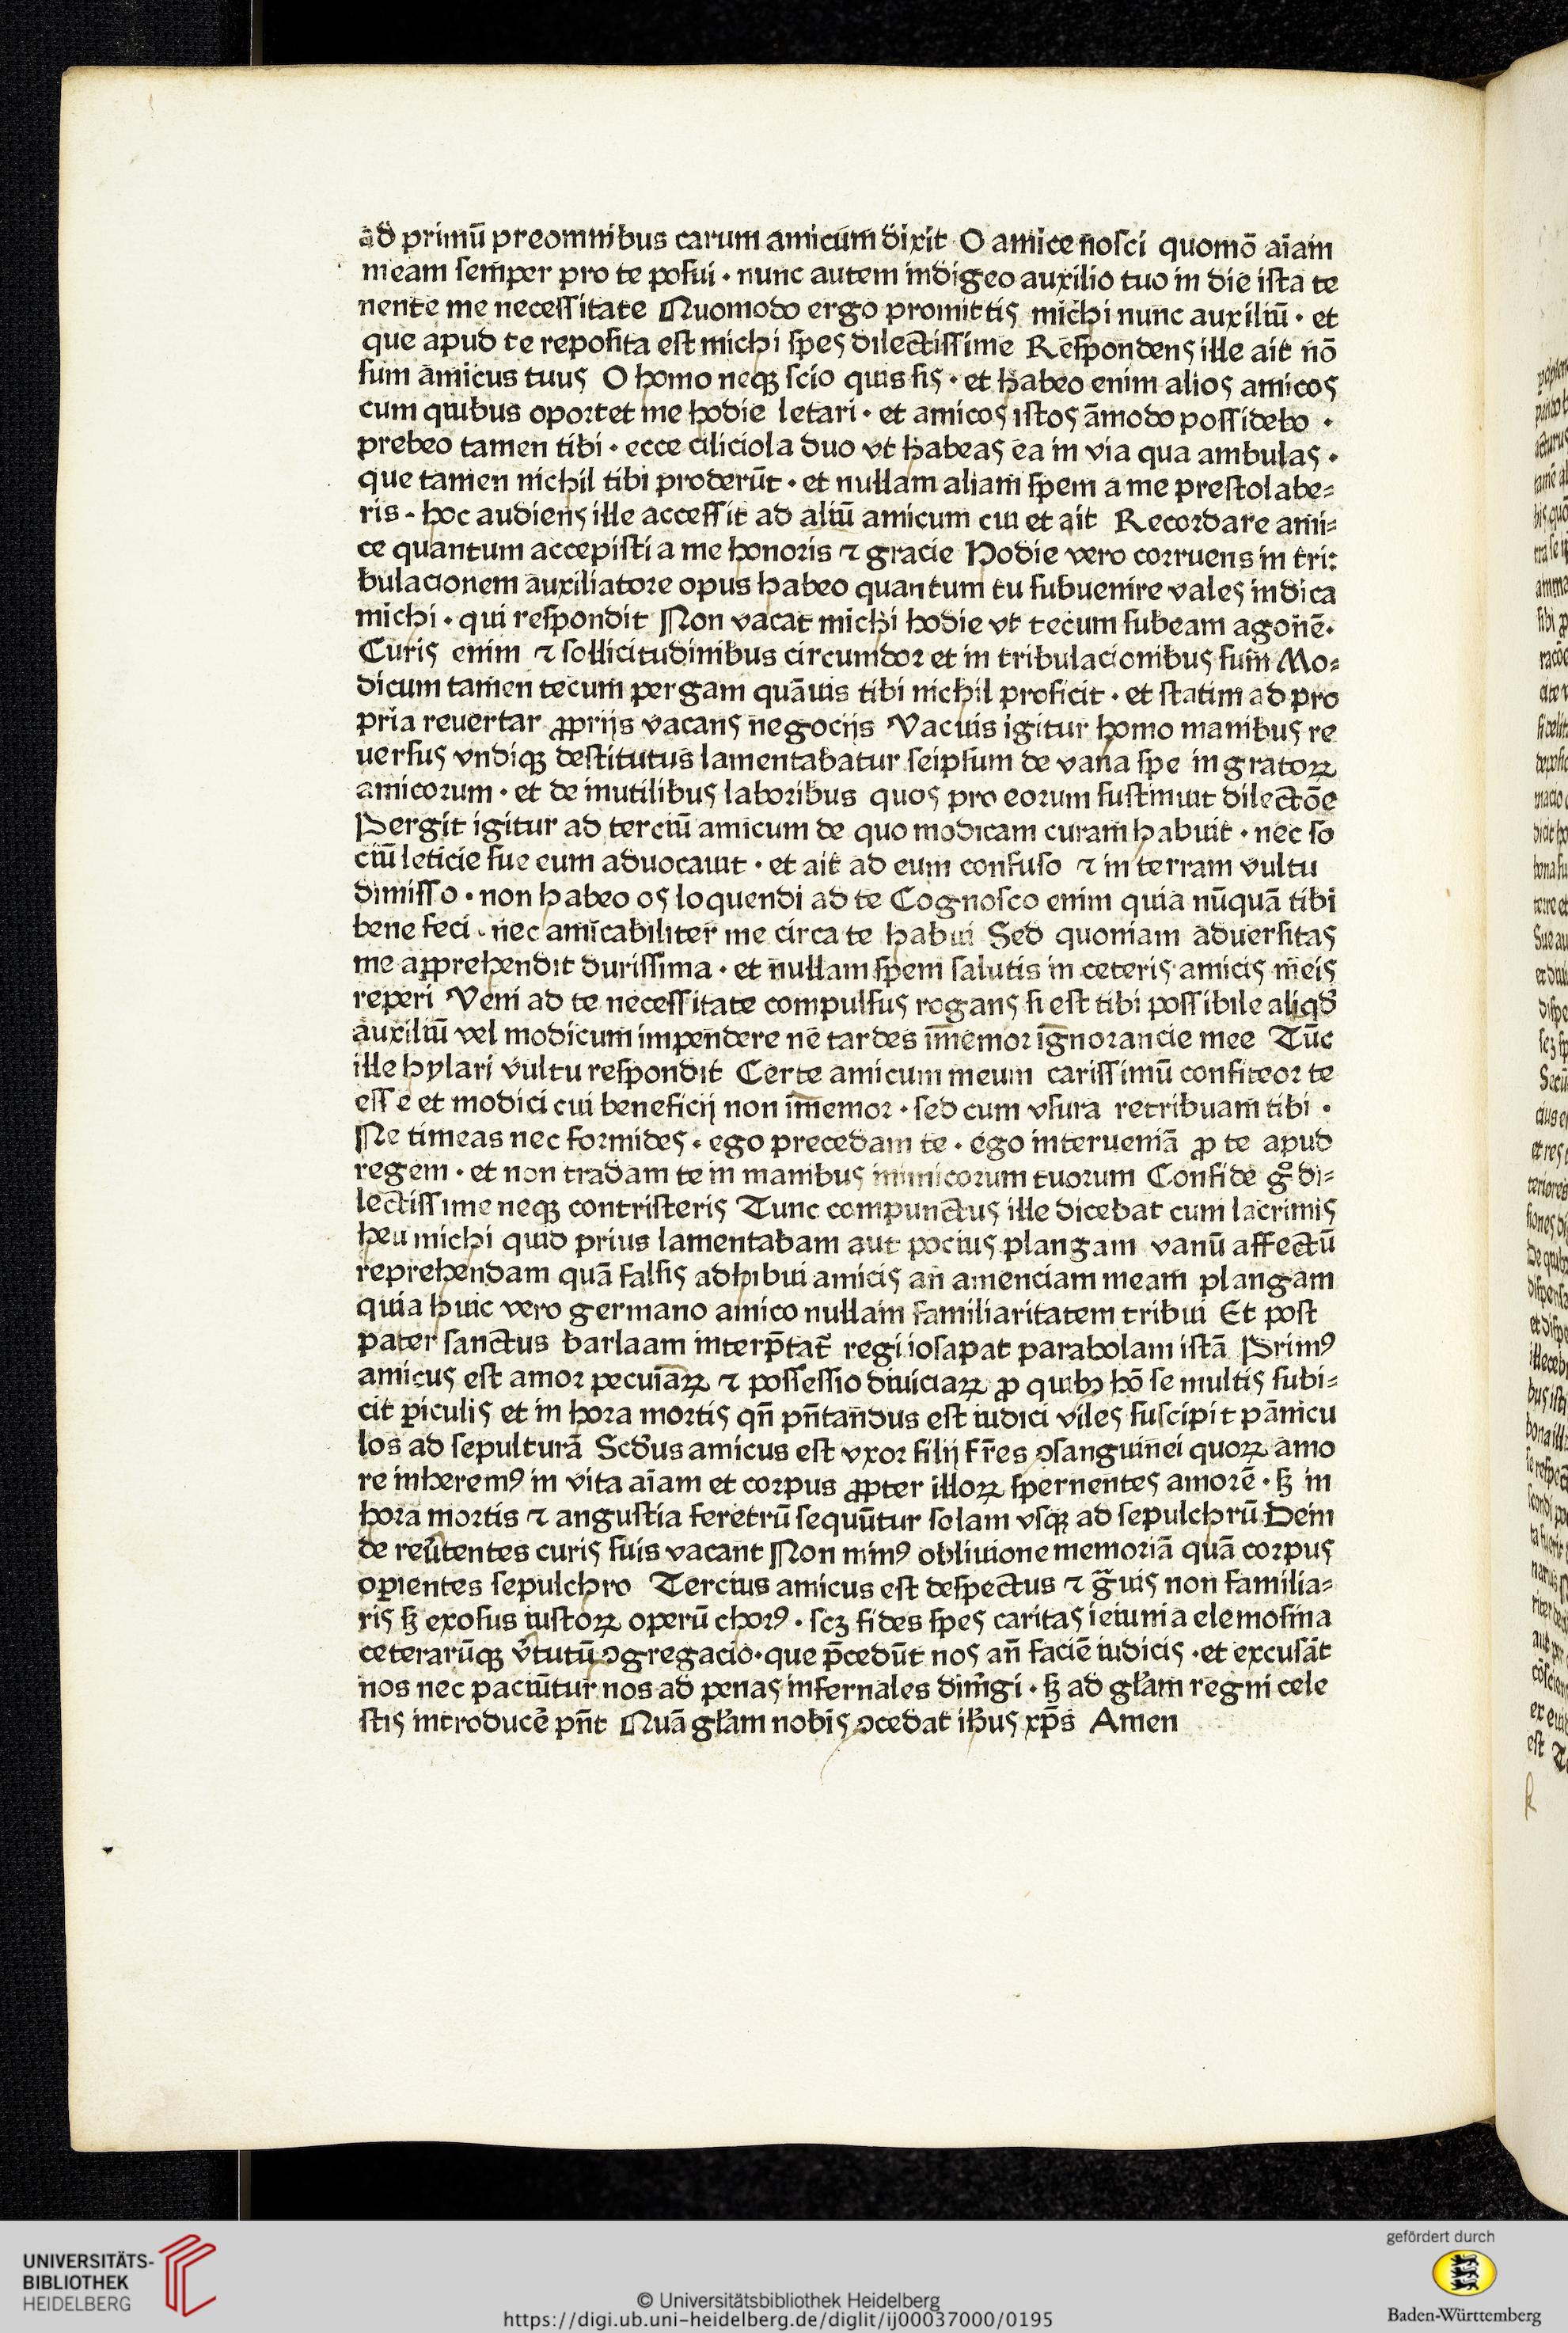 ad primū preomnibus carum amicum dixit O amice nosci quomō aīam
meam semper pro te posui · nunc autem indigeo auxilio tuo in die ista te
nente me necessitate Quomodo ergo promittis michi nunc auxiliū · et
que apud te reposita est michi spes dilectissime Respondens ille ait nō
sum amicus tuus O homo neqꝫ scio quis sis · et habeo enim alios amicos
cum quibus oportet me hodie letari · et amicos istos āmodo possidebo ·
prebeo tamen tibi · ecce ciliciola duo vt habeas ea in via qua ambulas ·
que tamen nichil tibi proderūt · et nullam aliam spem a me prestolabe⸗
ris · hoc audiens ille accessit ad aliū amicum cui et ait Recordare ami⸗
ce quantum accepisti a me honoris ⁊ gracie Hodie vero corruens in tri:
bulacionem auxiliatore opus habeo quantum tu subuenire vales indica
michi · qui respondit Non vacat michi hodie vt tecum subeam agonē·
Curis enim ⁊ sollicitudinibus circumdor et in tribulacionibus sum Mo⸗
dicum tamen tecum pergam quāuis tibi nichil proficit · et statim ad pro
pria reuertar ꝓprijs vacans negocijs Vacuis igitur homo manibus re
uersus vndiqꝫ destitutus lamentabatur seipsum de vana spe ingratoꝝ
amicorum · et de inutilibus laboribus quos pro eorum sustinuit dilectōe
Pergit igitur ad terciū amicum de quo modicam curam habuit · nec so
ciū leticie sue eum aduocauit · et ait ad eum confuso ⁊ in terram vultu
dimisso · non habeo os loquendi ad te Cognosco enim quia nūquā tibi
bene feci · nec amicabiliter me circa te habui Sed quoniam aduersitas
me apprehendit durissima · et nullam spem salutis in ceteris amicis meis
reperi Veni ad te necessitate compulsus rogans si est tibi possibile aliqd̕
auxiliū vel modicum impendere ne tardes īmemor ignorancie mee Tūc
ille hylari vultu respondit Certe amicum meum carissimū confiteor te
esse et modici cui beneficij non īmemor · sed cum vsura retribuam tibi ·
Ne timeas nec formides · ego precedam te · ego interueniā ꝓ te apud
regem · et non tradam te in manibus inimicorum tuorum Confide gͦ di⸗
lectissime neqꝫ contristeris Tunc compunctus ille dicebat cum lacrimis
heu michi quid prius lamentabam aut pocius plangam vanū affectū
reprehendam quā falsis adhibui amicis an amenciam meam plangam
quia huic vero germano amico nullam familiaritatem tribui Et post
pater sanctus barlaam interp̄tat̄ regi iosapat parabolam istā Primꝰ
amicus est amor pecuīaꝝ ⁊ possessio diuiciaꝝ ꝓ quibꝫ hō se multis subi⸗
cit ꝑiculis et in hora mortis qn̄ pn̄tandus est iudici viles suscipit pānicu
los ad sepulturā Scd̕us amicus est vxor filij fr̄es ↄsanguinei quoꝝ amo
re inheremꝰ in vita aīam et corpus ꝓpter illoꝝ spernentes amorē · sꝫ in
hora mortis ⁊ angustia feretrū sequūtur solam vsqꝫ ad sepulchrū Dein
de reu̕tentes curis suis vacant Non minꝰ obliuione memoriā quā corpus
oꝑientes sepulchro Tercius amicus est despectus ⁊ g̃uis non familia⸗
ris sꝫ exosus iustoꝝ operū chorꝰ · scꝫ fides spes caritas ieiunia elemosina
ceterarūqꝫ v̕tutū ↄgregacio·que p̄cedūt nos an̄ faciē iudicis · et excusāt
nos nec paciūtur nos ad penas infernales dim̕gi · sꝫ ad gl̕am regni cele
stis introducē pn̄t Quā gl̕am nobis ↄcedat ih̕us xp̄s Amen
UNIVERSITÄTS-
BIBLIOTHEK
HEIDELBERG
© Universitätsbibliothek Heidelberg
https://digi.ub.uni-heidelberg.de/diglit/ij00037000/0195
gefördert durch
Baden-Württemberg